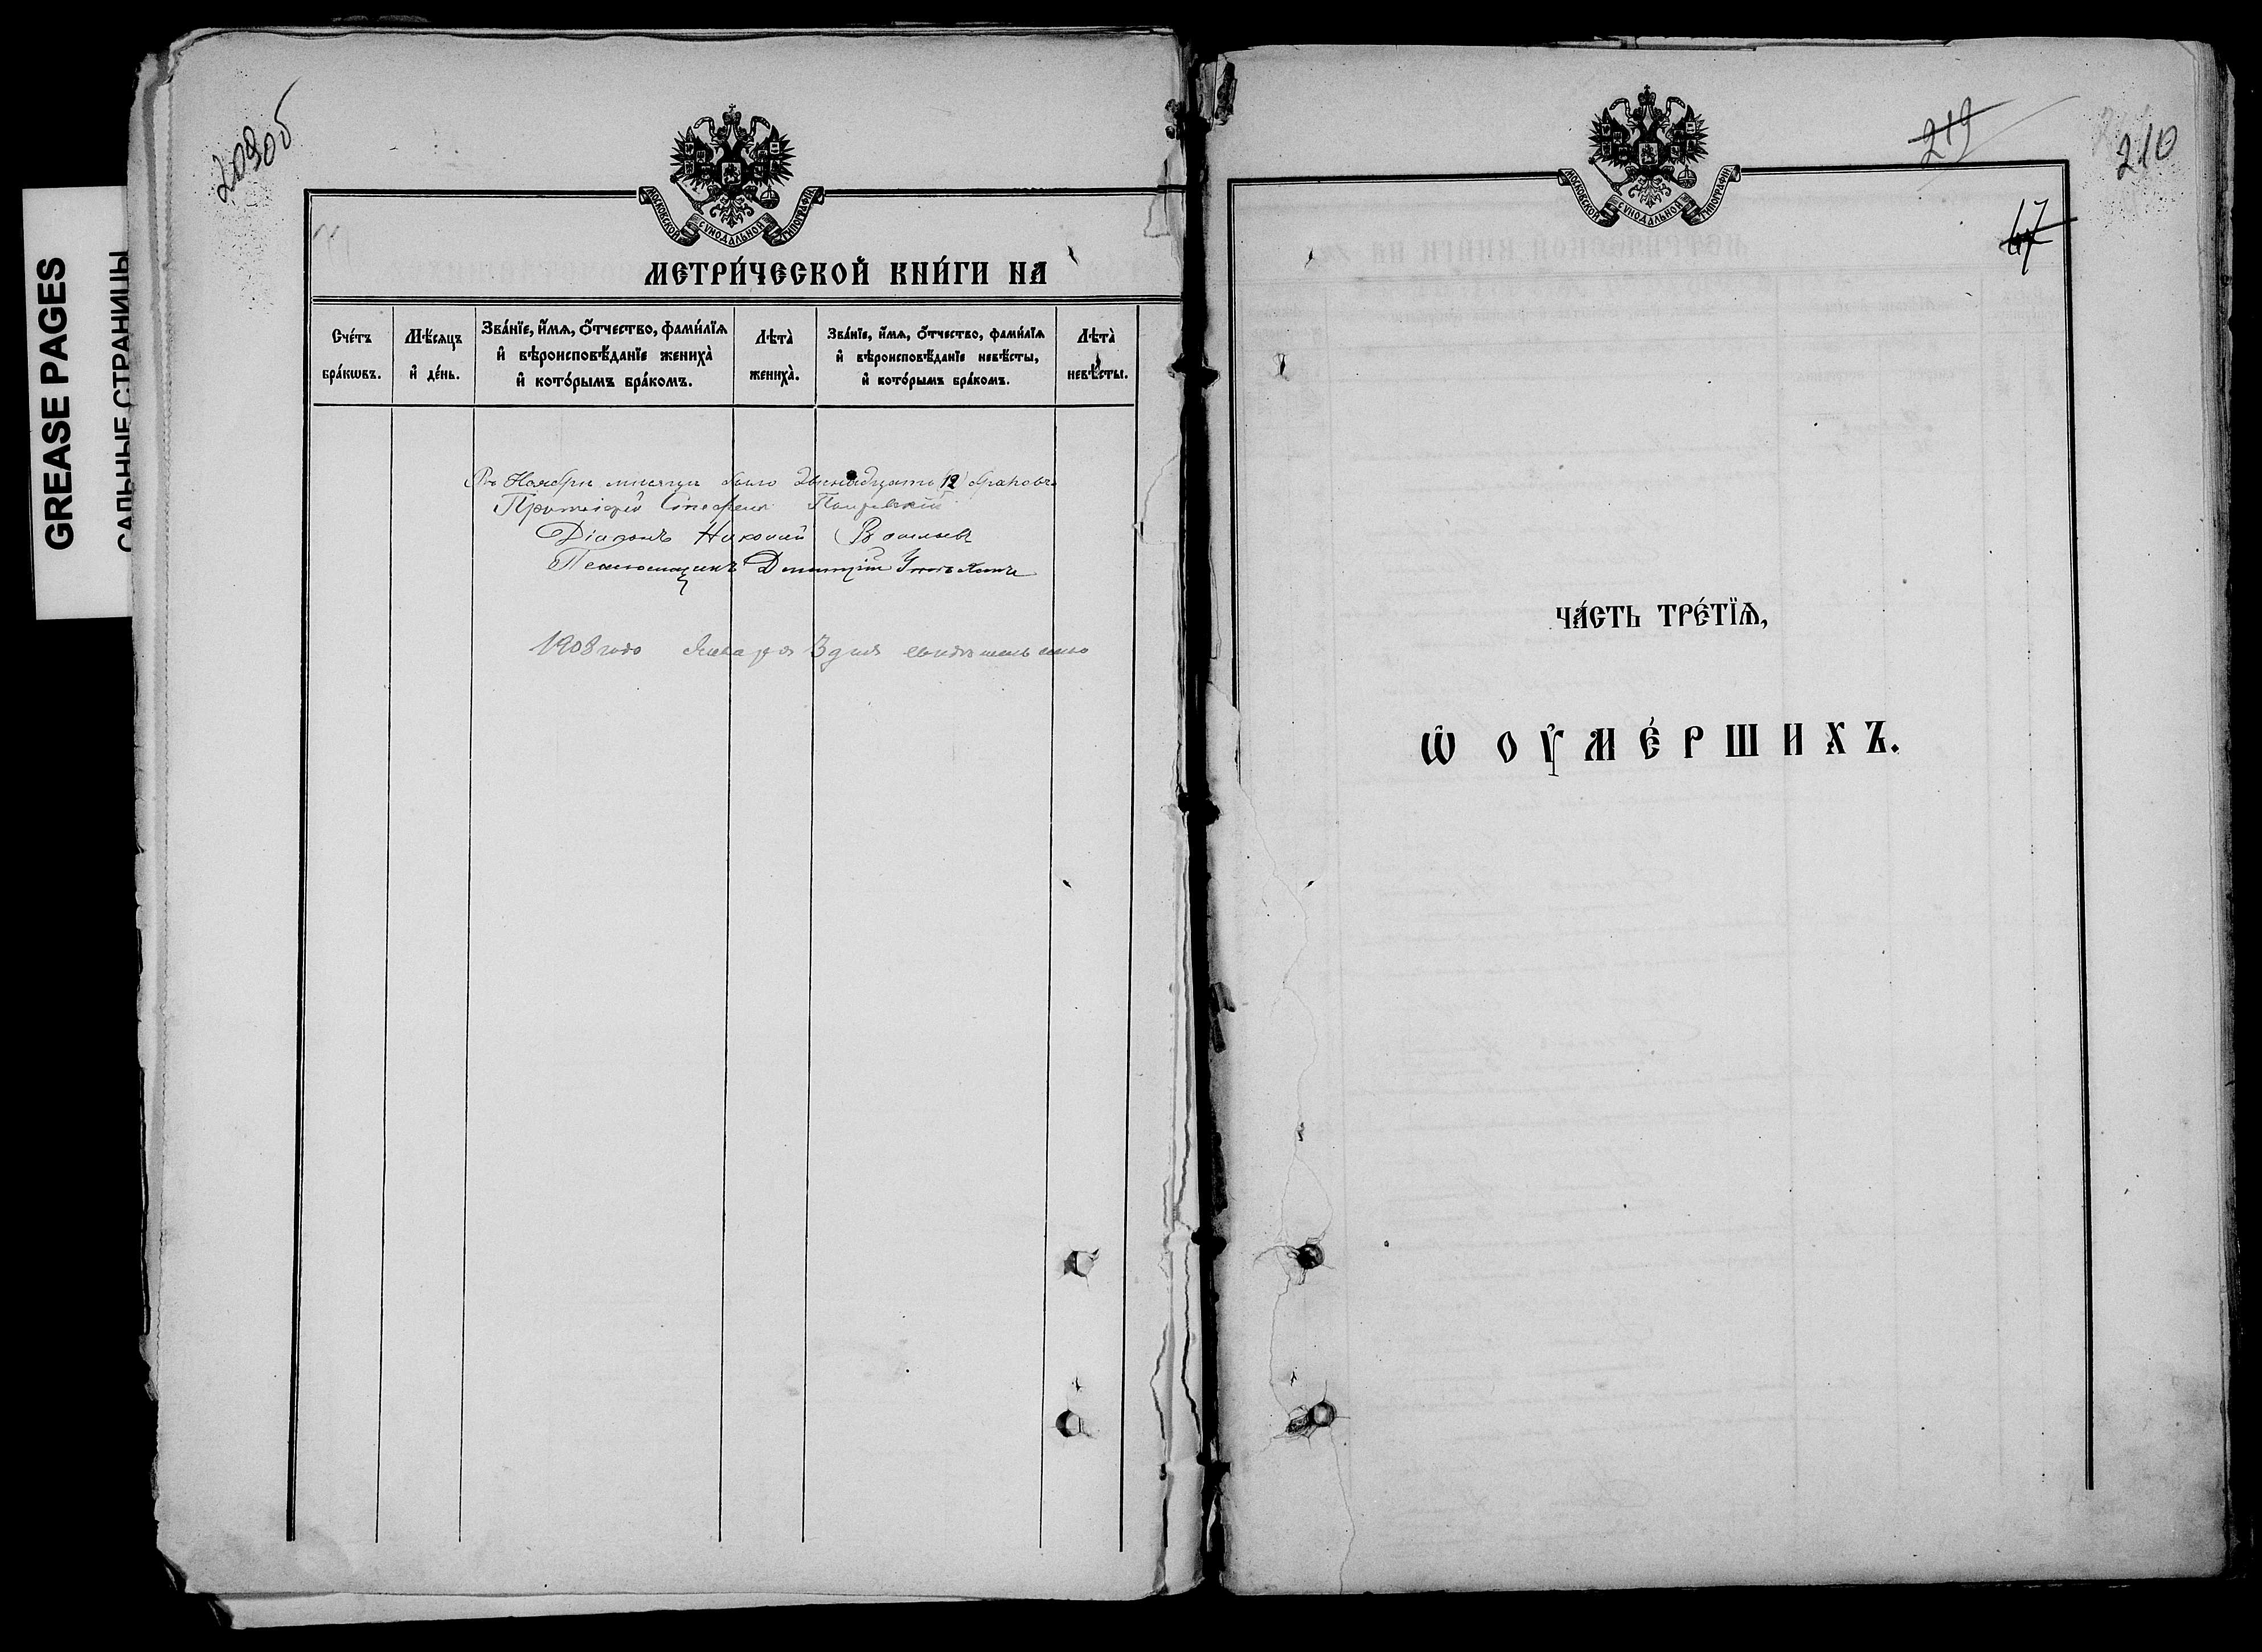 GREASE PAGES
САЛЬНЫЕ СТРАНИЦЫ
209об
МОСКОВСКОЙ СѴНОДАЛЬНОЙ ТИПОГРАФІИ
МЕТРИ́ЧЕСКОЙ КНИ́ГИ НА
Сче́тъ бра́кѡвъ.
Мѣ́сяцъ и҆ де́нь.
Зва́нїе, и҆́мѧ, ѻ҆́тчество, фами́лїѧ и҆ вѣроисповѣ́данїе жениха̀ и҆ кото́рымъ бра́комъ.
Лѣта̀ жениха̀.
Зва́нїе, и҆́мѧ, ѻ҆́тчество, фами́лїѧ и҆ вѣроисповѣ́данїе невѣ́сты, и҆ кото́рымъ бра́комъ.
Лѣта̀ невѣ́сты.
Въ Ноябрѣ мѣсяцѣ было двенадцать (12) браковъ
Протоіерей Стефанъ
Діаконъ Николай Васильевъ
Псаломщикъ Димитрій
1908 года Января 3 дня свидѣтельствовано
219
210
МОСКОВСКОЙ СѴНОДАЛЬНОЙ ТИПОГРАФІИ
17
ЧА́СТЬ ТРЕ́ТЇѦ,
Ѽ ОУ҆МЕ́РШИХЪ.